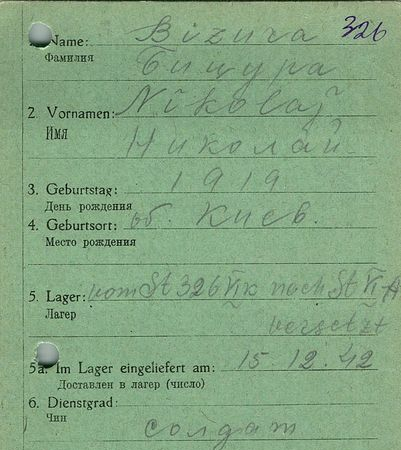 1. Name: Bizura 326
Фамилия Бицура
2. Vornamen: Nikolaj
Имя Николай
3. Geburtstag: 1919
День рождения
4. Geburtsort: об. Киев.
Место рождения
5. Lager: vom St 326 VI K nach St VI A
Лагер versetzt
5a. Im Lager eingeliefert am: 15.12.42
Доставлен в лагер (число)
6. Dienstgrad:
Чин солдат